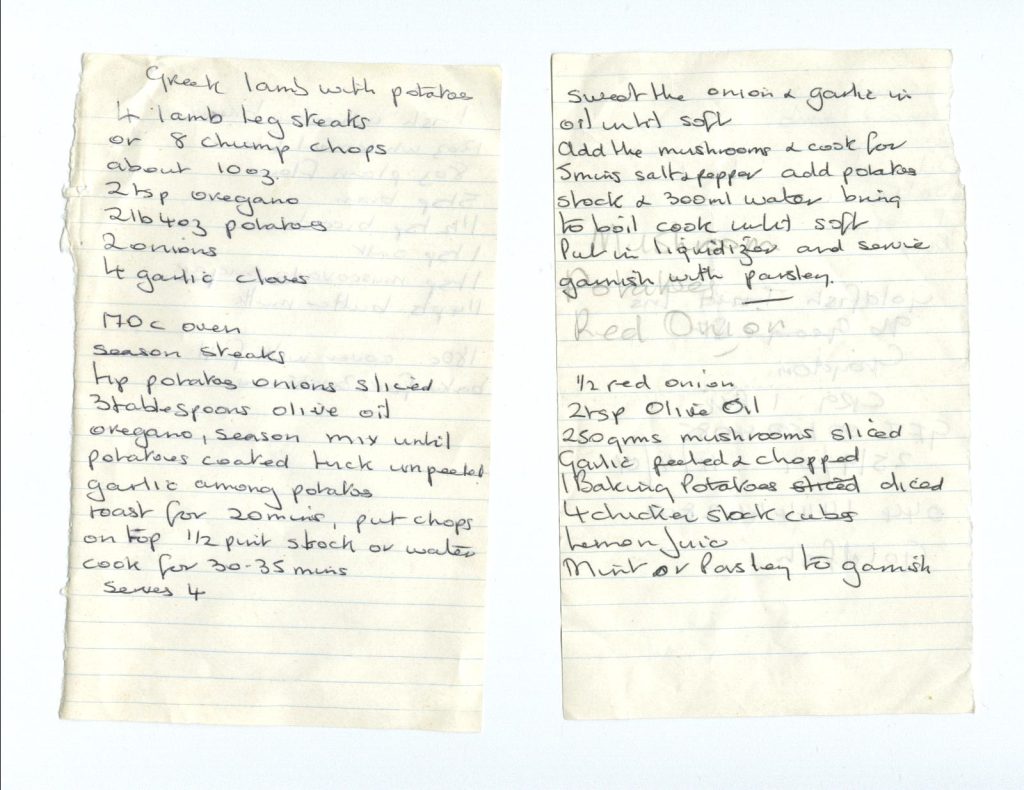 Greek lamb with potatoes
4 lamb leg steaks
or 8 chump chops
about 10oz
2 tsp oregano
2lb 4oz potatoes
2 onions
4 garlic cloves
170c oven
season steaks
tip potatoes onions sliced
3tablespoons olive oil
oregano, season mix until
potatoes coated tuck unpeeled
garlic among potatoes
roast for 20mins, put chops
on top 1/2 pint stock or water
cook for 30-35 mins
Serves 4
sweat the onion & garlic in
oil until soft
Add the mushrooms & cook for
5mins salt & pepper add potatoes
stock & 300ml water bring
to boil cook until soft
Put in liquidizer and serve
garnish with parsley.
Red Onion
1/2 red onion
2tsp Olive Oil
250grms mushrooms sliced
Garlic peeled & chopped
1 Baking Potatoes sliced diced
4 chicken stock cubes
Lemon Juice
Mint or Parsley to garnish